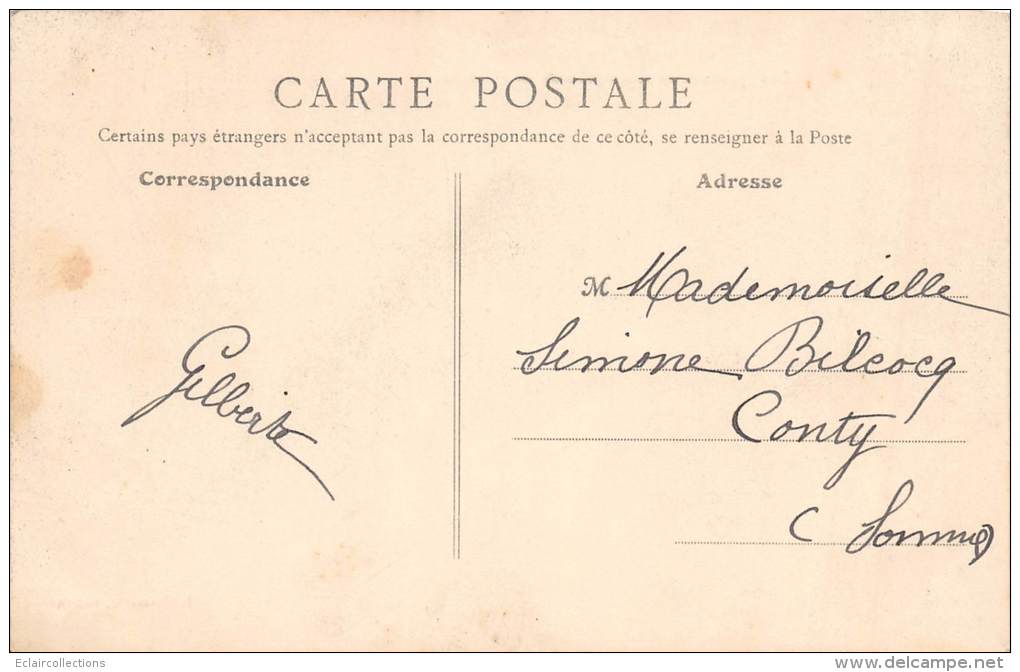 CARTE POSTALE
Certains pays étrangers n'acceptant pas la correspondance de ce côté, se renseigner à la Poste
Correspondance
Adresse
M Mademoiselle
Simone Bilcocq
Conty
(Somme)
Gilberte
Eclaircollections
delcampe.net